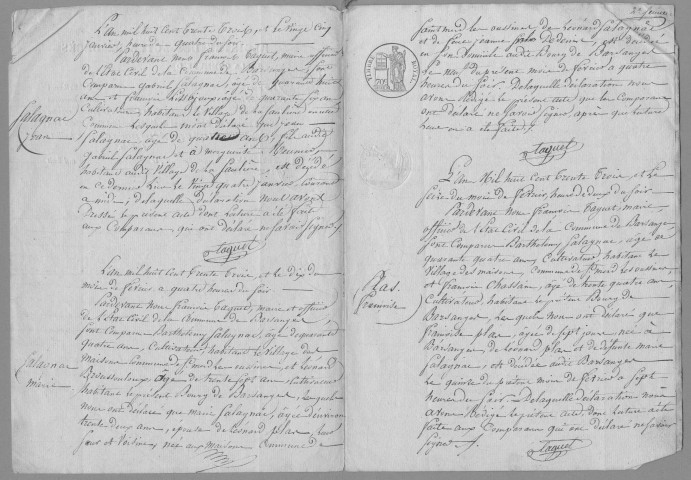 L'an mil huit cent trente trois et le vingt cinq
janvier, heure de quatre du soir.
Pardevant nous françois Taguet, maire officier
de l'état Civil de la Commune de Barsanges, sont
Comparus gabriel Salagnac, âgé de quarante
ans et françois âgé de quarante
Cultivateurs, habitant le Village de la
Commune Lesquels nous ont déclaré que jean
Salagnac âgé de quatre ans, fils audit
gabriel Salagnac et à marguerite
habitant audit Village de la est décédé
en ce domicile le vingt quatre janvier, courant
à midi, delaquelle déclaration nous avons
Dressé le présent acte dont lecture a été fait
aux Comparans, qui ont déclaré ne savoir signer
Taguet
Salagnac
jean
L'an mil huit cent trente trois et le dix du
mois de fevrier a quatre heures du soir
Pardevant nous françois Taguet, maire et officier
de l'état Civil de la Commune de Barsanges,
sont Comparus Barthelemy Salagnac, âgé de quarante
quatre ans, Cultivateur, habitant le Village des
Maisons Commune de St merd les oussines, et Léonard
âgé de trente sept ans Cultivateur
habitant le présent Bourg de Barsanges, Lesquels
nous ont déclaré que marie Salagnac, âgée d'environ
trente deux ans, épouse de Léonard plas, leur
sœur et Voisine, née aux maisons Commune de
Salagnac
marie
2e feuillet
Saint merd les oussines de Léonard Salagnac
et de feue jeanne est décédée
en son Domicile audit Bourg de Barsanges
Le neuf du présent mois de fevrier a quatre
heures du soir. Delaquelle déclaration nous
avons rédigé le présent acte que les Comparans
ont déclaré ne savoir signer, après que lecture
leur en a été faite.
Taguet
L'an Mil huit Cent trente trois et le
seize du mois de fevrier, heure de deux du soir
Pardevant nous françois Taguet, maire
officier de l'état Civil de la Commune de Barsanges
sont Comparus Barthelemy Salagnac, âgé de
quarante quatre ans Cultivateur, habitant le
Village des maisons, Commune de St merd les oussines
et françois Chassain, âgé de trente quatre ans
Cultivateur, habitant le présent Bourg de
Barsanges, Lesquels nous ont déclaré que
françoise plas, âgée de sept jours née à
Barsanges, de Léonard plas et de défunte marie
Salagnac, est décédée audit Barsanges
Le quinze du présent mois de fevrier a sept
heures du soir. Delaquelle déclaration nous
avons Rédigé le présent acte, dont lecture a été
faite aux Comparans qui ont déclaré ne savoir
signer
Taguet
Plas
françoise